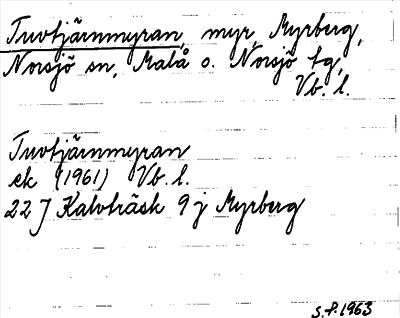 Tuvtjärnmyran, myr, Myrberg,
Norsjö sn, Malå o. Norsjö tg,
Vb. l.
Tuvtjärnmyran
ek (1961) Vb. l.
22 J Kalvträsk 9 j Myrberg
S.P. 1963